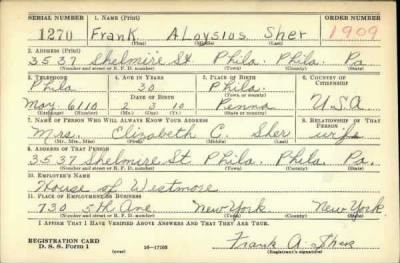 SERIAL NUMBER 1. NAME (Print) ORDER NUMBER
1270 Frank ALoysios Sher 1909
(First) (Middle) (Last)
2. ADDRESS (Print)
3537 Shelmire St. Phila. Phila. Pa.
(Number and street or R. F. D. number) (Town) (County) (State)
3. TELEPHONE 4. AGE IN YEARS 5. PLACE OF BIRTH 6. COUNTRY OF CITIZENSHIP
Phila 30 Phila.
DATE OF BIRTH (Town or county)
May. 6110 2 3 10 Penna U.S.A.
(Exchange) (Number) (Mo.) (Day) (Yr.) (State or country)
7. NAME OF PERSON WHO WILL ALWAYS KNOW YOUR ADDRESS 8. RELATIONSHIP OF THAT PERSON
Mrs. Elizabeth C. Sher wife
(Mr., Mrs., Miss) (First) (Middle) (Last)
9. ADDRESS OF THAT PERSON
3537 Shelmire St. Phila. Phila. Pa.
(Number and street or R. F. D. number) (Town) (County) (State)
10. EMPLOYER'S NAME
House of Westmore
11. PLACE OF EMPLOYMENT OR BUSINESS
730 5th Ave. New York New York.
(Number and street or R. F. D. number) (Town) (County) (State)
I AFFIRM THAT I HAVE VERIFIED ABOVE ANSWERS AND THAT THEY ARE TRUE.
REGISTRATION CARD
D. S. S. Form 1 (over) 16—17105 Frank A. Sher
(Registrant's signature)